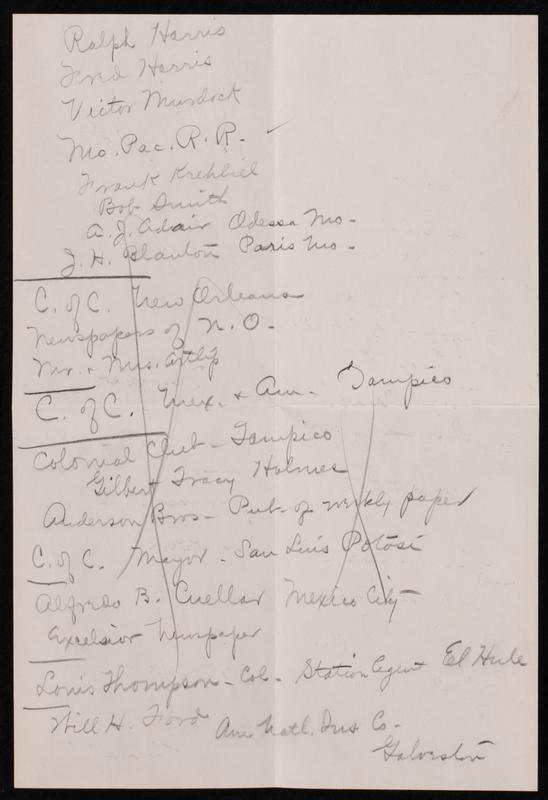 Ralph Harris
Fred Harris
Victor Murdock
Mo. Pac. R. R. -
Frank Krehbiel
Bob Smith
A. J. Adair Odessa Mo -
J. H. Blanton Paris Mo -
C. of C. New Orleans
Newspapers of N. O. -
Mr. + Mrs. Artlip
C. of C. Mex. + Am. Tampico
Colonial Club - Tampico
Gilbert Tracy Holmes
Anderson Bros - Pub. of weekly paper
C. of C. Mayor - San Luis Potosi
Alfredo B. Cuellar Mexico City
Excelsior Newspaper
Louis Thompson - Col - Station Agent El Hule
Will H. Ford Am. Natl. Ins Co -
Galveston